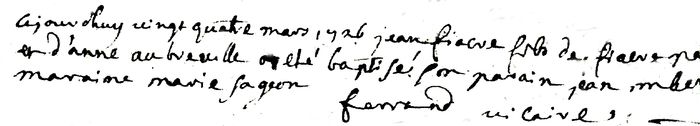 ajourdhuy vingt quatre mars 1726 jean fiacre fils de fiacre
et d'anne aubreville a eté baptisé son parain jean imber
maraine marie sageon
ferrand vicaire